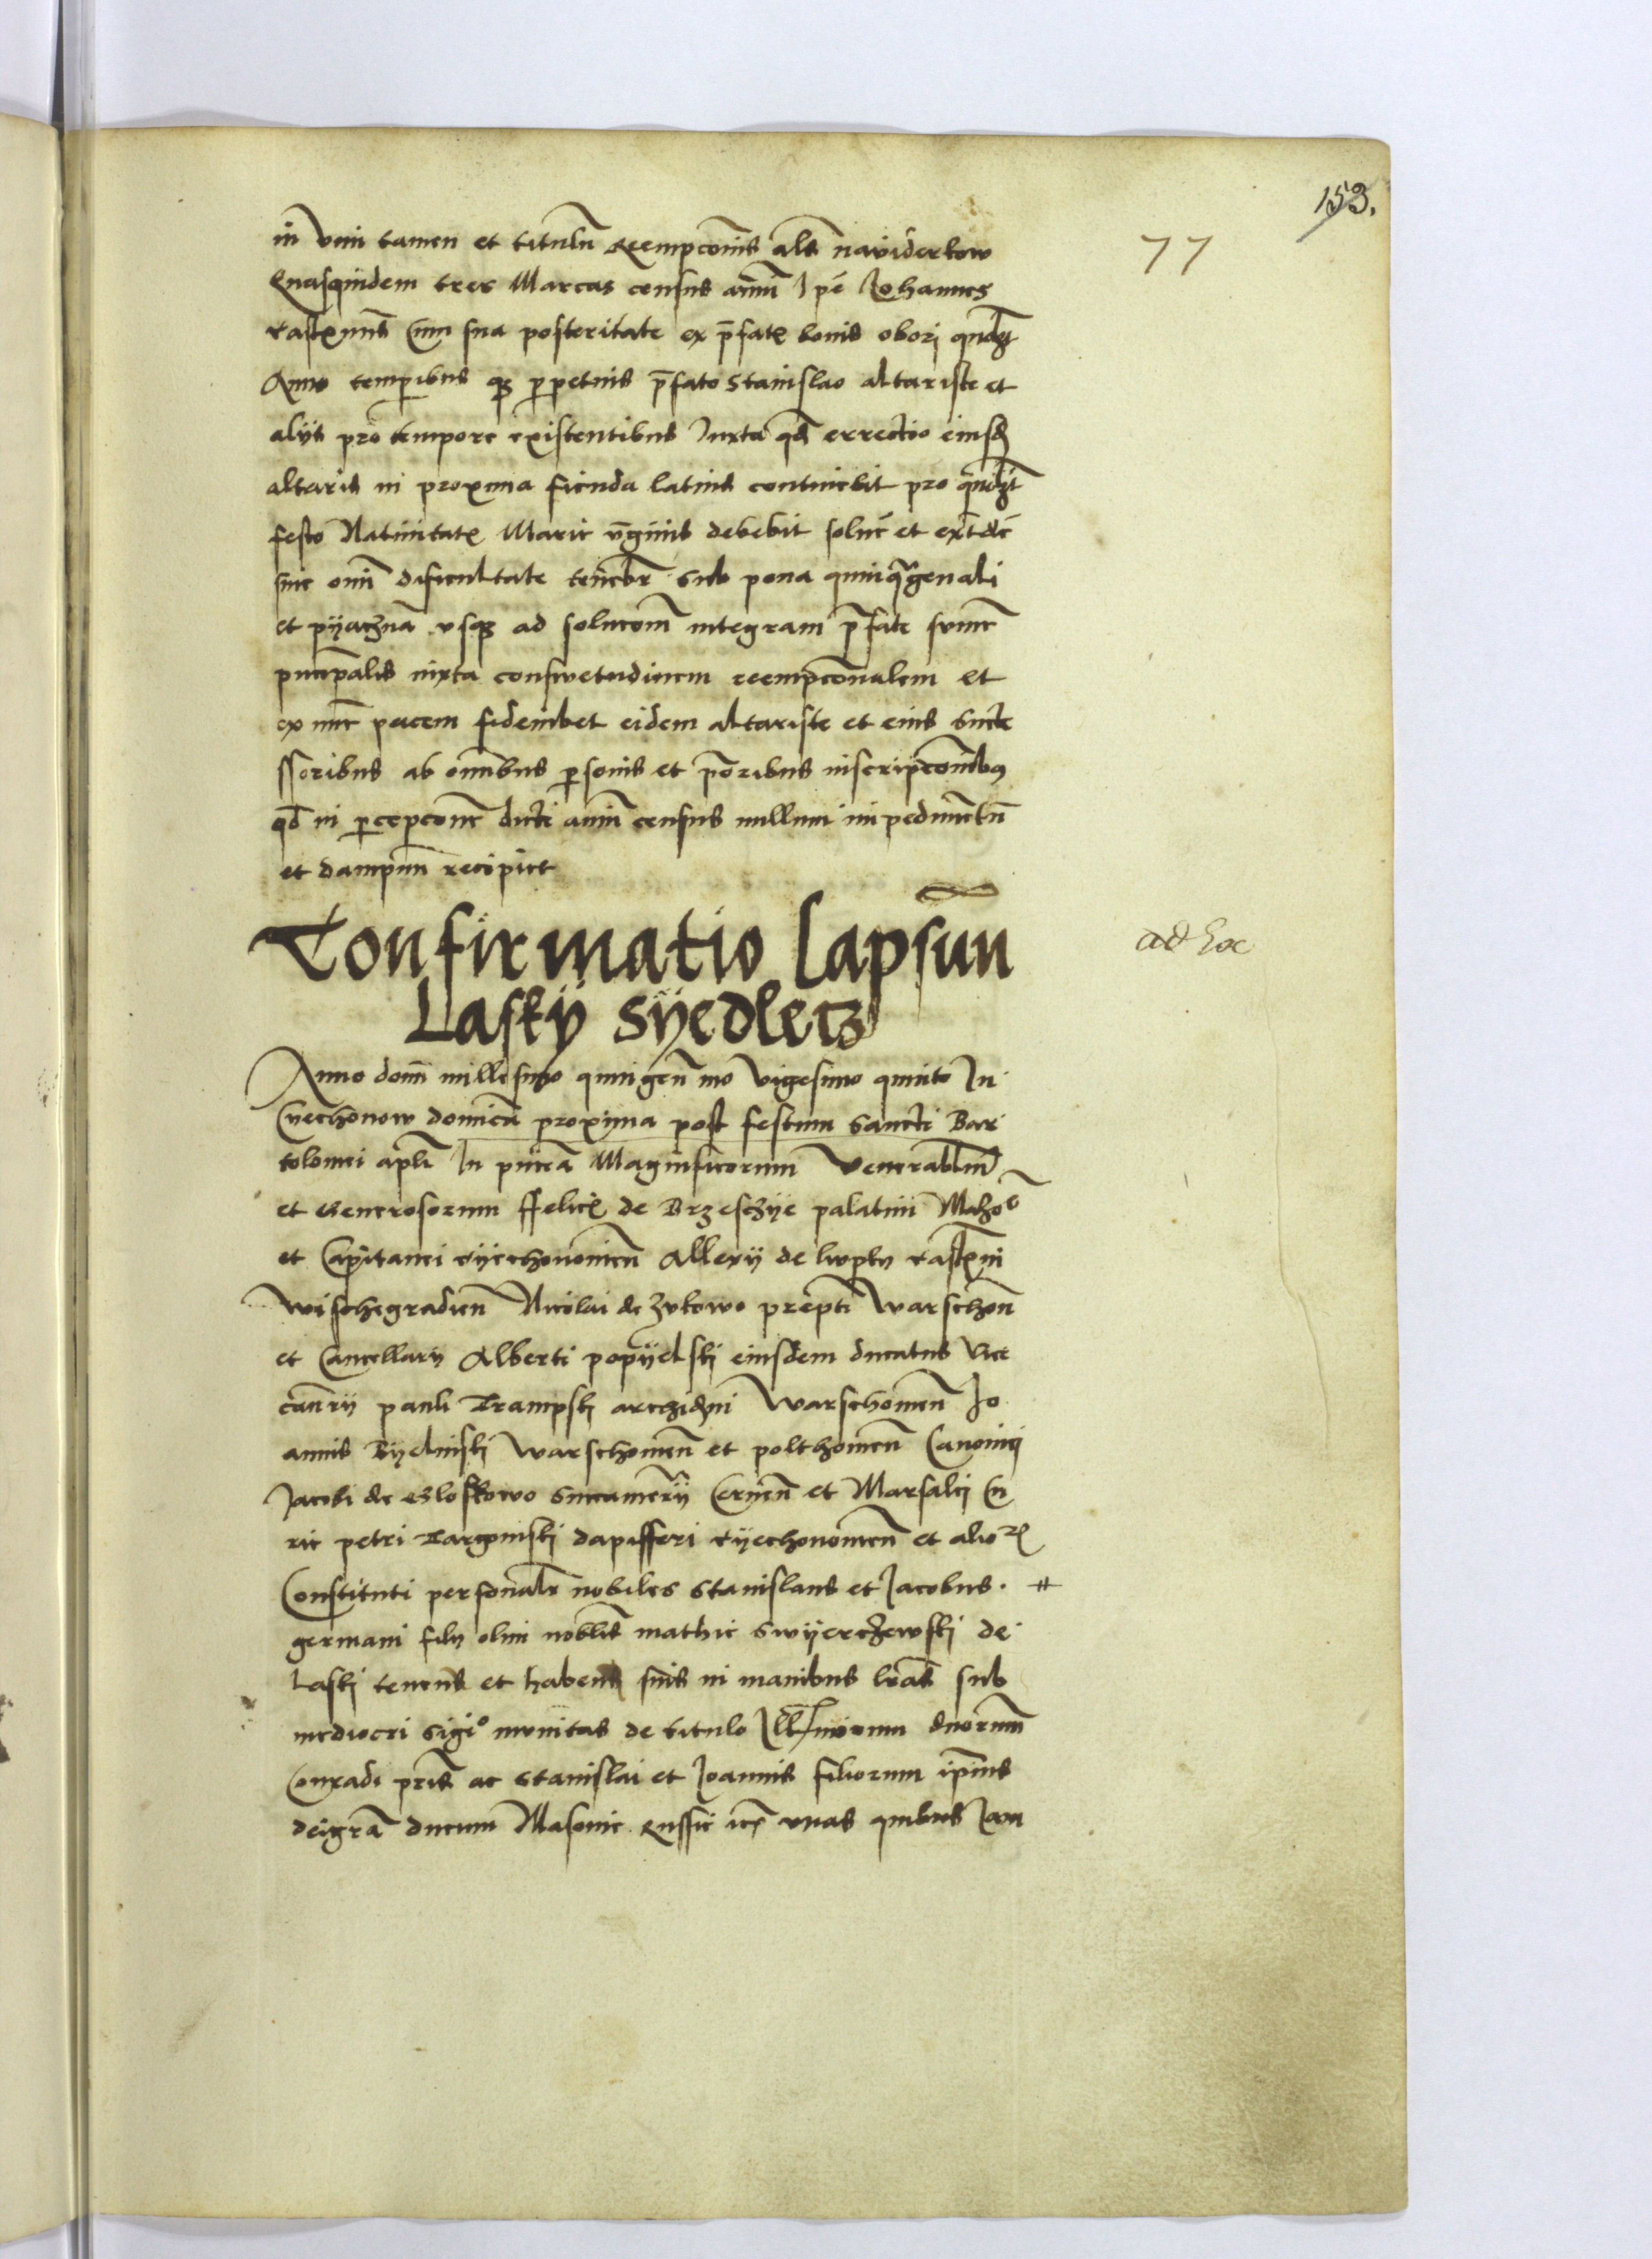 153.
77
in vim tamen et titulu Reempconis als naviderkow
Quasquidem tres Marcas census annui Ipe Johannes
Castellanus Cum sua posteritate ex prefatis bonis obori quolibet
Anno temporibus perpetuis prefato Stanislao altariste et
alijs pro tempore existentibus Iuxta quod errectio eiusdem
altaris in proxima fienda latius continebit pro quolibet
festo Nativitatis Marie virginis debebit solvere et
sine omni dificultate tenebitur Sub pena quinquagenali
et pyathna usque ad solucom integram prefate summe
principalis iuxta conswetudinem reempconalem et
ex nunc pacem fideiubet eidem altariste et eius Succe
ssoribus ab omnibus personis et prioribus inscripconibus
quod in percepcone dicti annui census nullum impedimentum
et dampnum recipiet
Confirmatio lapsuu
Lasky Syedlecz
ad hoc
Anno domi millesimo quingen mo vigesimo quinto In
Cyechonow dominica proxima post festum Sancti Bar
tolomei apli In pntia Magnificorum Venerabilium
et Generosorum ffelicis de Brzeschye palatini Mazo
et Capitanei Cyechonomien Allexy de castellani
Wischegradien Nicolai de Zukowo prepti Warschon
et Cancellary Alberti popyelski eiusdem ducatus Vice
canry pauli archidni Warschomen Jo
annis Byelinski Warschomen et polthomen Canonici
Jacobi de Gloskowo Succamerary Cernen et Marsalci Cu
rie petri Targonski dapifferi Cyechonomien et alio
Constituti personalr nobiles Stanislaus et Jacobus #
germani fily olim nobilis mathie Swyerczewski de
Laski tenens et habens suis in manibus lras sub
mediocri sigio munitas de titulo Illmorum duorum
Conradi pris ac Stanislai et Joannis filiorum ipius
deigra ducum Masovie Russie unas quibus Jam